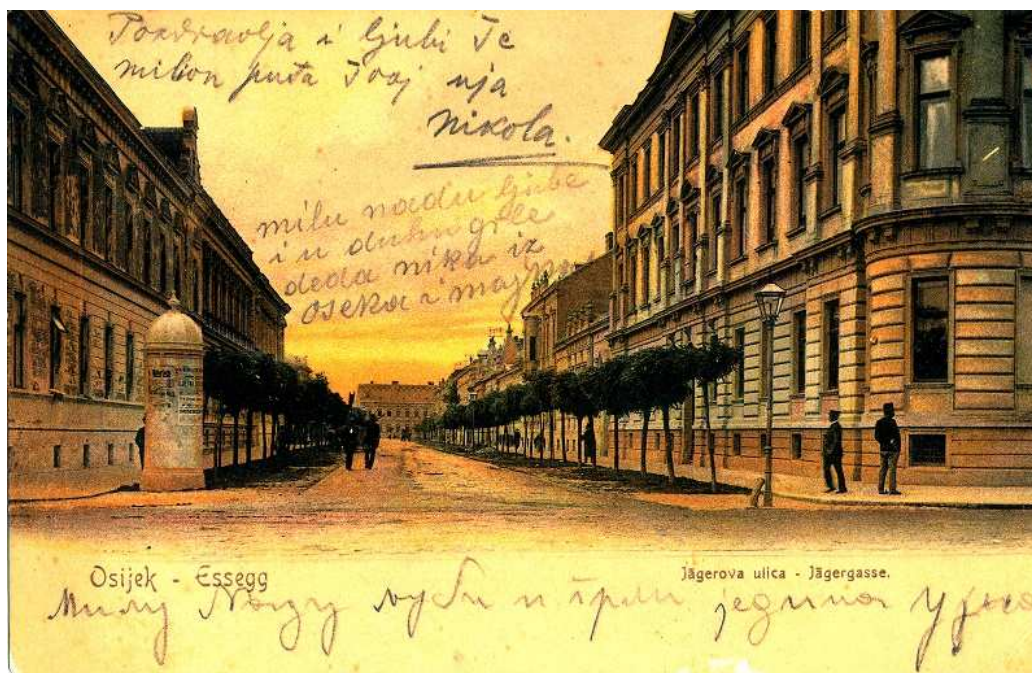 Pozdravlja i ljubi Te
milion puta Tvoj uja
Nikola.
milu nadu ljube
i u duhu grle
deda nika iz
oseka i majka
Osijek - Essegg
Jägerova ulica - Jägergasse.
Милу Наду